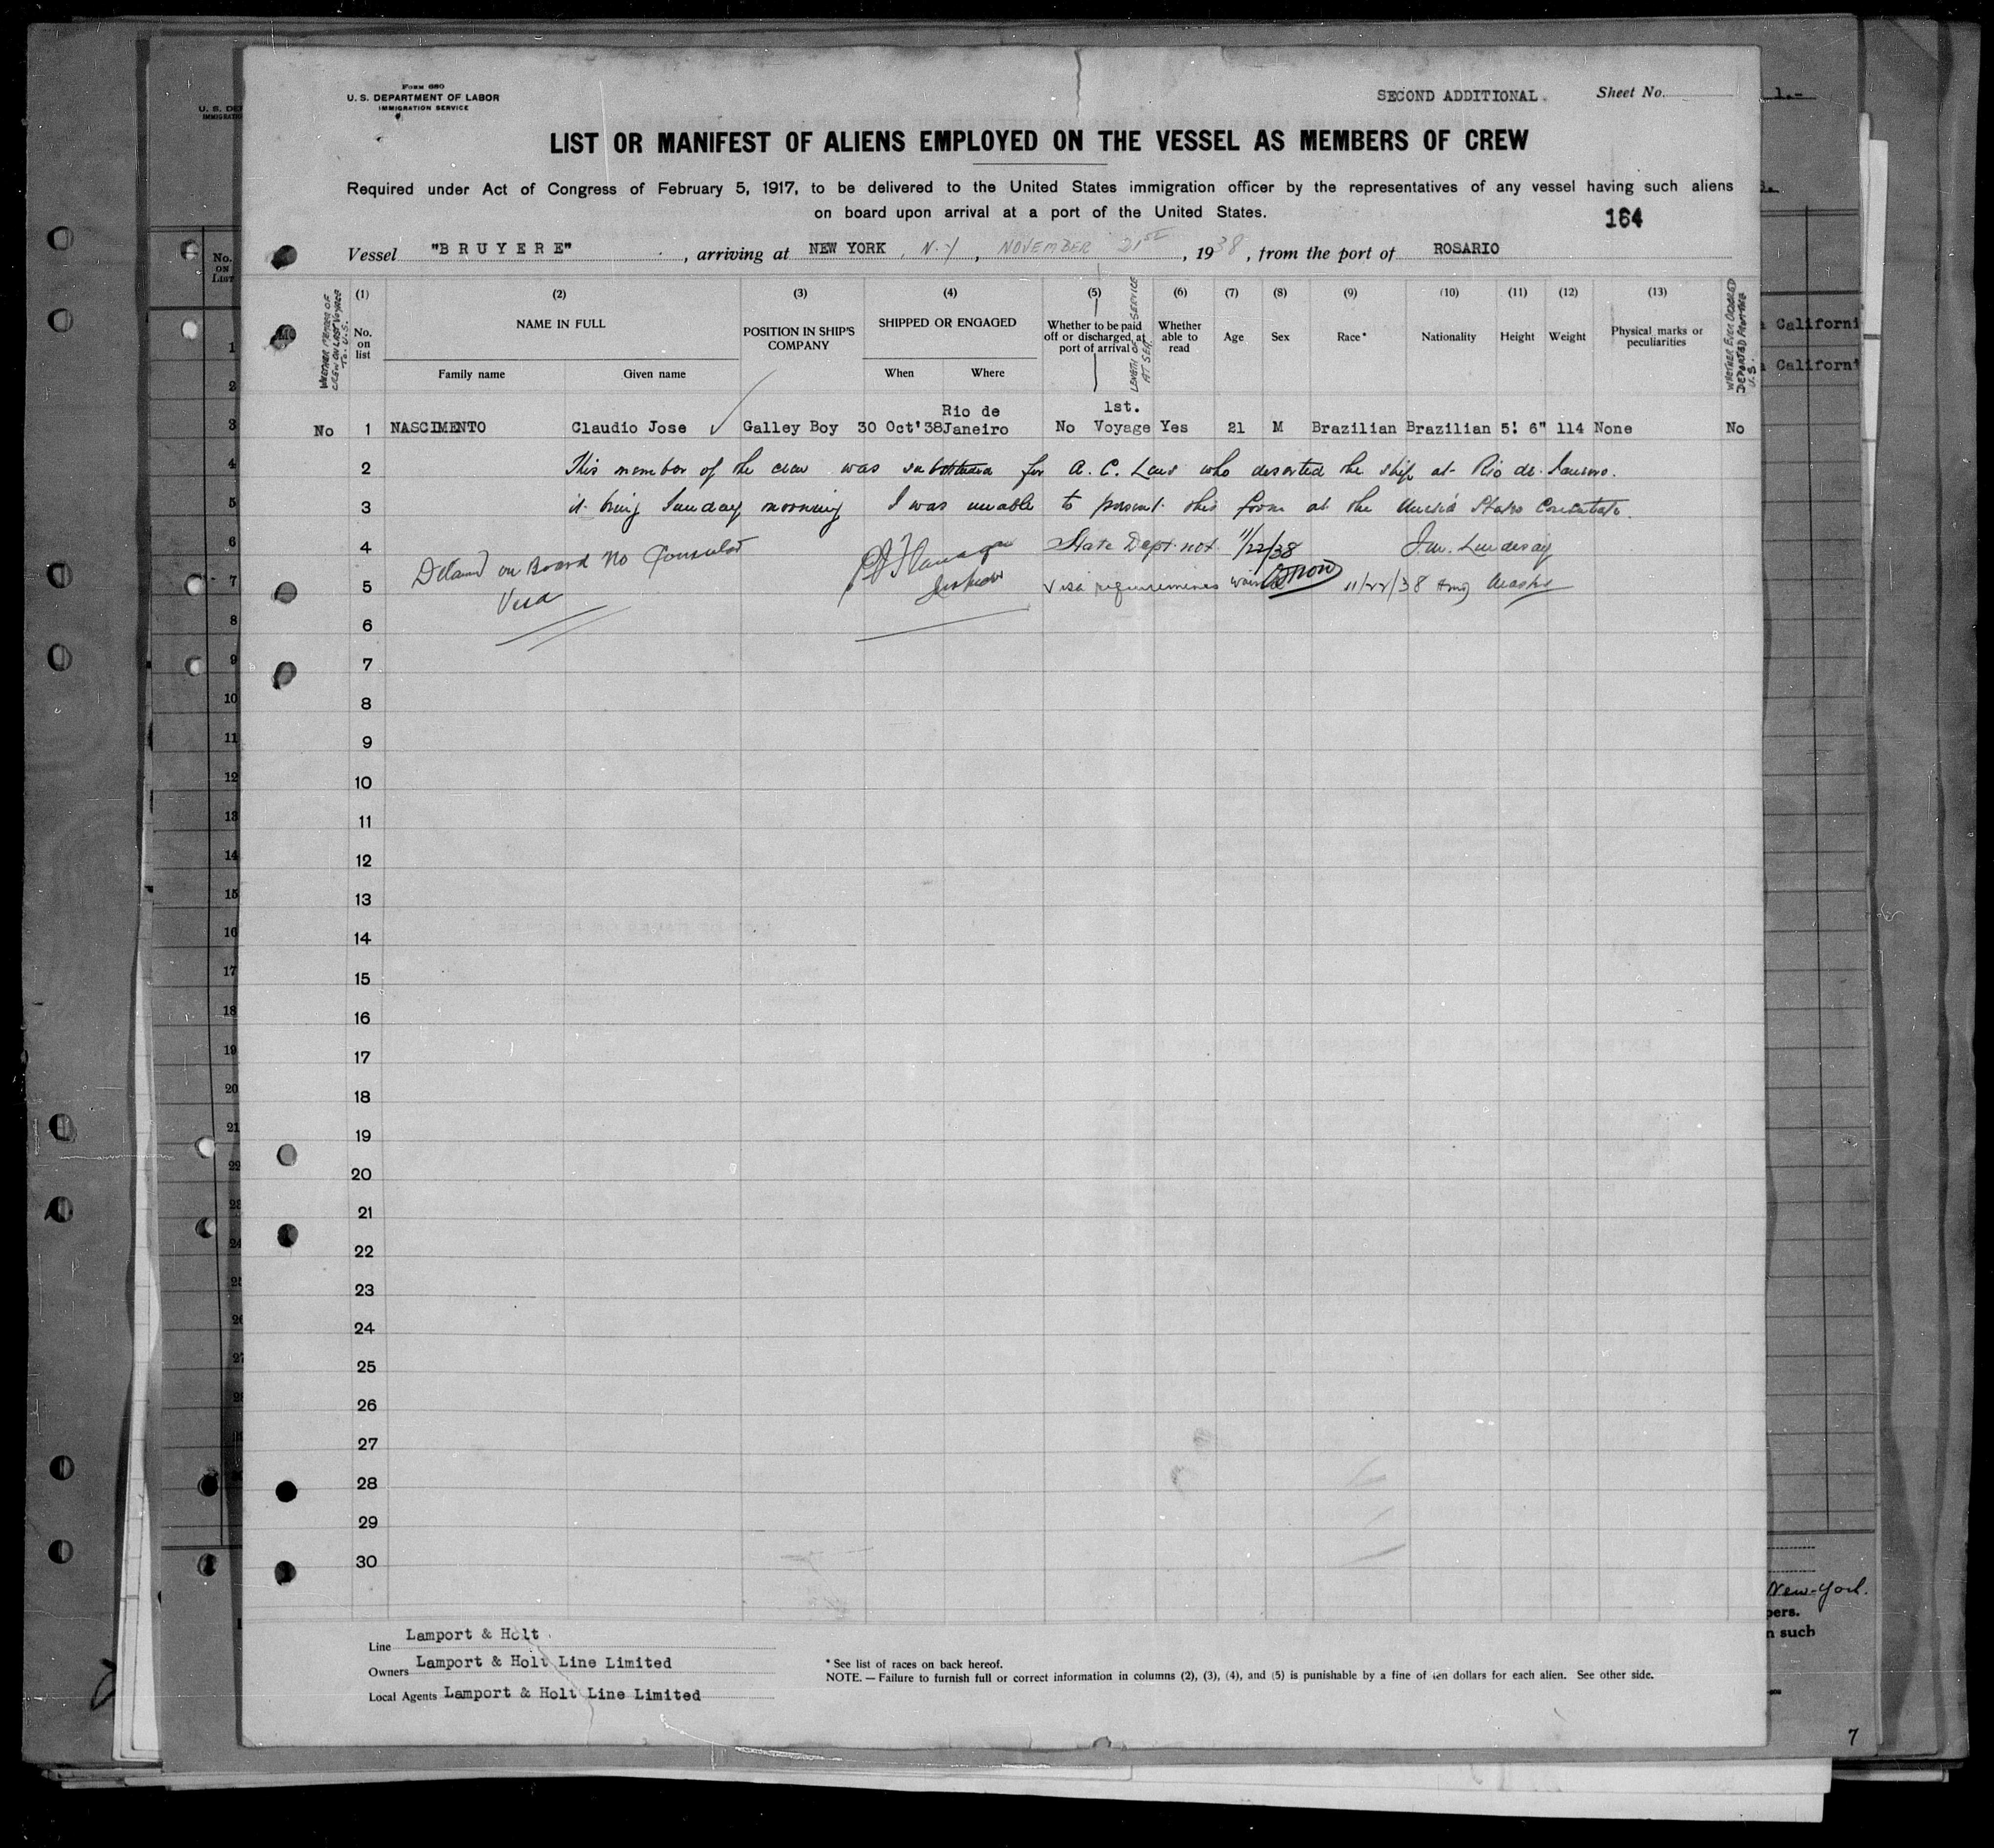 Form 680
U. S. DEPARTMENT OF LABOR
IMMIGRATION SERVICE
SECOND ADDITIONAL. Sheet No.
LIST OR MANIFEST OF ALIENS EMPLOYED ON THE VESSEL AS MEMBERS OF CREW
Required under Act of Congress of February 5, 1917, to be delivered to the United States immigration officer by the representatives of any vessel having such aliens
on board upon arrival at a port of the United States.
164
Vessel "BRUYERE", arriving at NEW YORK, N.Y, NOVEMBER 21ST, 1938, from the port of ROSARIO
WHETHER MEMBER OF CREW ON LAST VOYAGE TO U.S.
(1) No. on list
(2) NAME IN FULL
Family name Given name
(3) POSITION IN SHIP'S COMPANY
(4) SHIPPED OR ENGAGED
When Where
(5) Whether to be paid off or discharged at port of arrival
LENGTH OF SERVICE AT SEA
(6) Whether able to read
(7) Age
(8) Sex
(9) Race*
(10) Nationality
(11) Height
(12) Weight
(13) Physical marks or peculiarities
WHETHER EVER ORDERED DEPORTED FROM U.S.
No 1 NASCIMENTO Claudio Jose Galley Boy 30 Oct'38 Rio de Janeiro No 1st. Voyage Yes 21 M Brazilian Brazilian 5' 6" 114 None No
2 This member of the crew was substituted for A. C. who deserted the ship at Rio de Janeiro.
3 it being Sunday morning I was unable to present this form at the United States Consulate.
4 State Dept. not. 11/22/38 Lindesay
Detained on Board No Consular
5 Visa Inspector Visa requirements waived 11/22/38
6
7
8
9
10
11
12
13
14
15
16
17
18
19
20
21
22
23
24
25
26
27
28
29
30
Line Lamport & Holt
Owners Lamport & Holt Line Limited
Local Agents Lamport & Holt Line Limited
* See list of races on back hereof.
NOTE.—Failure to furnish full or correct information in columns (2), (3), (4), and (5) is punishable by a fine of ten dollars for each alien. See other side.
Californi
Californi
New-York.
pers.
n such
7